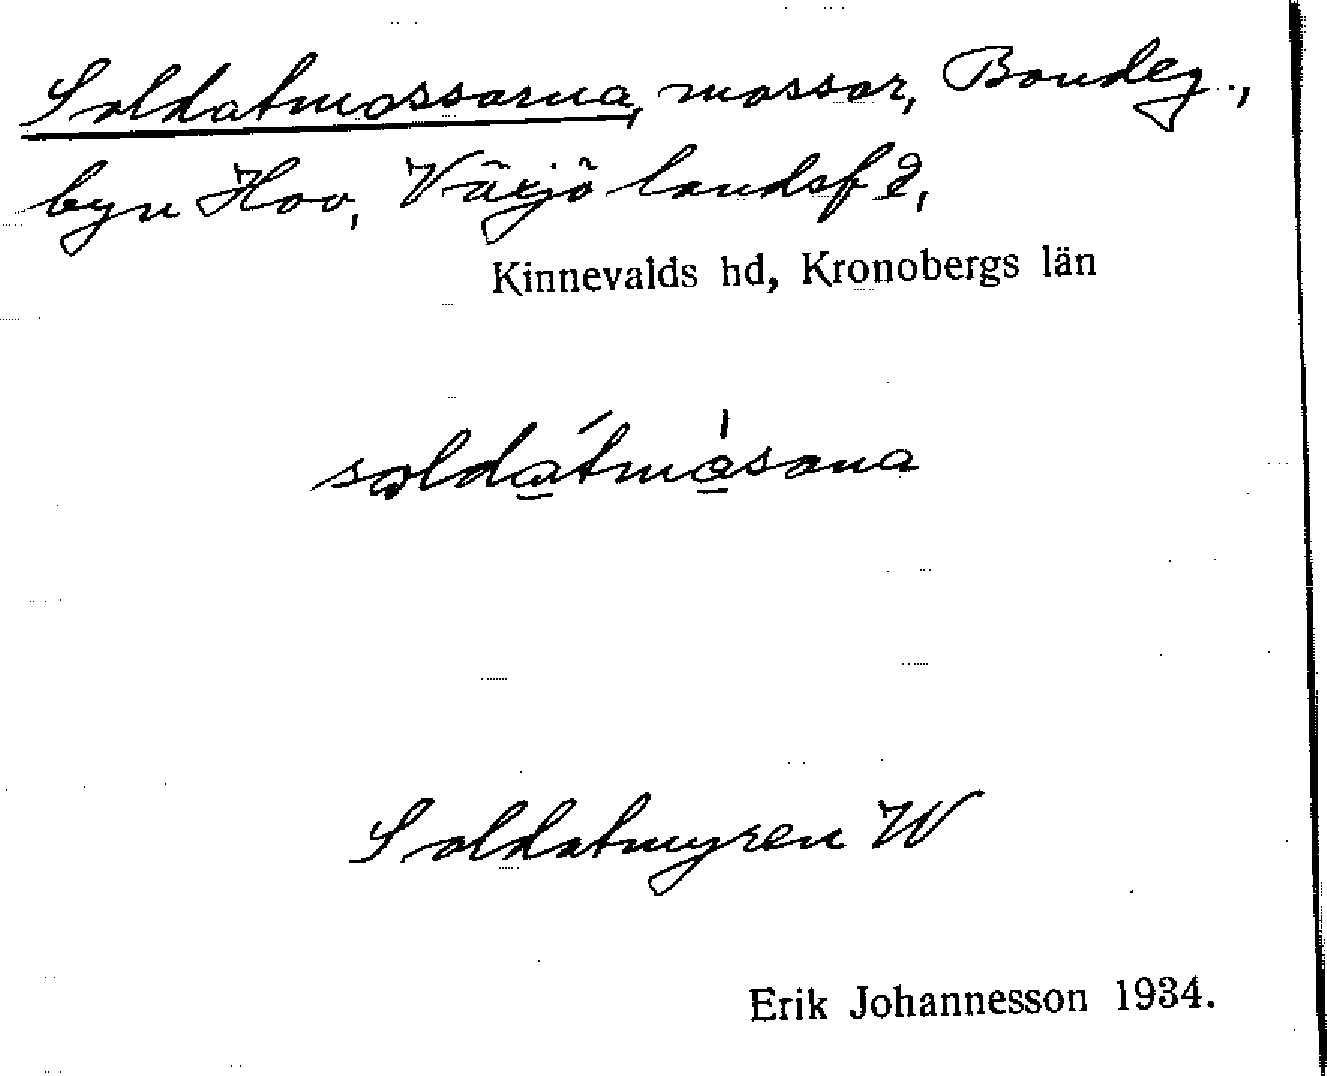 Soldatmossarna, mossar, Bondeg.,
byn Hov, Växjö landsf d,
Kinnevalds hd, Kronobergs län
soldátmásana
Soldatmyren W
Erik Johannesson 1934.